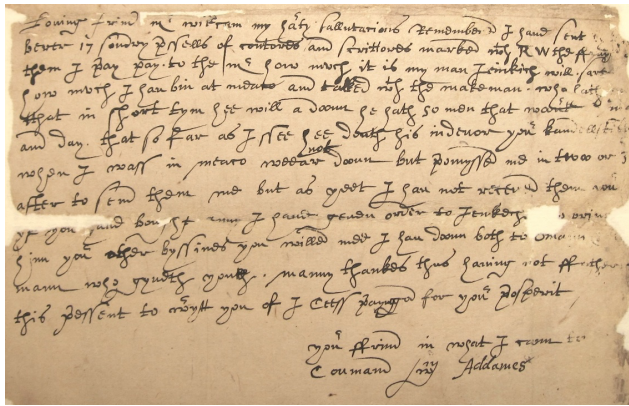 Loving frind mr wikcam my harty sallutacions Remembered I haue sent
berer 17 sondry pssells of contores and scrittores marked wth RW the
them I pay pay to the mr how mvch it is my man Jenkich will
how mvch I hau bin at meaco and talked wth the makeman who
that in short tym hee will a doun he hath 50 men that
and day that so far as I ssee hee death his indevor your
when I wass in meaco wear not doun but promyssed me in twoo or
after to send them me but as yeet I hau not receved them
yf you bought I haue geuen order to Jenkech
him your other byssines you willed mee I hau doun both to
mann who gyueth you manny thankes thus having not ffvrther
this pessent to wryt you of I Cess paying for your posperit
your ffrind in what I cann to
Coumand Wm Addames